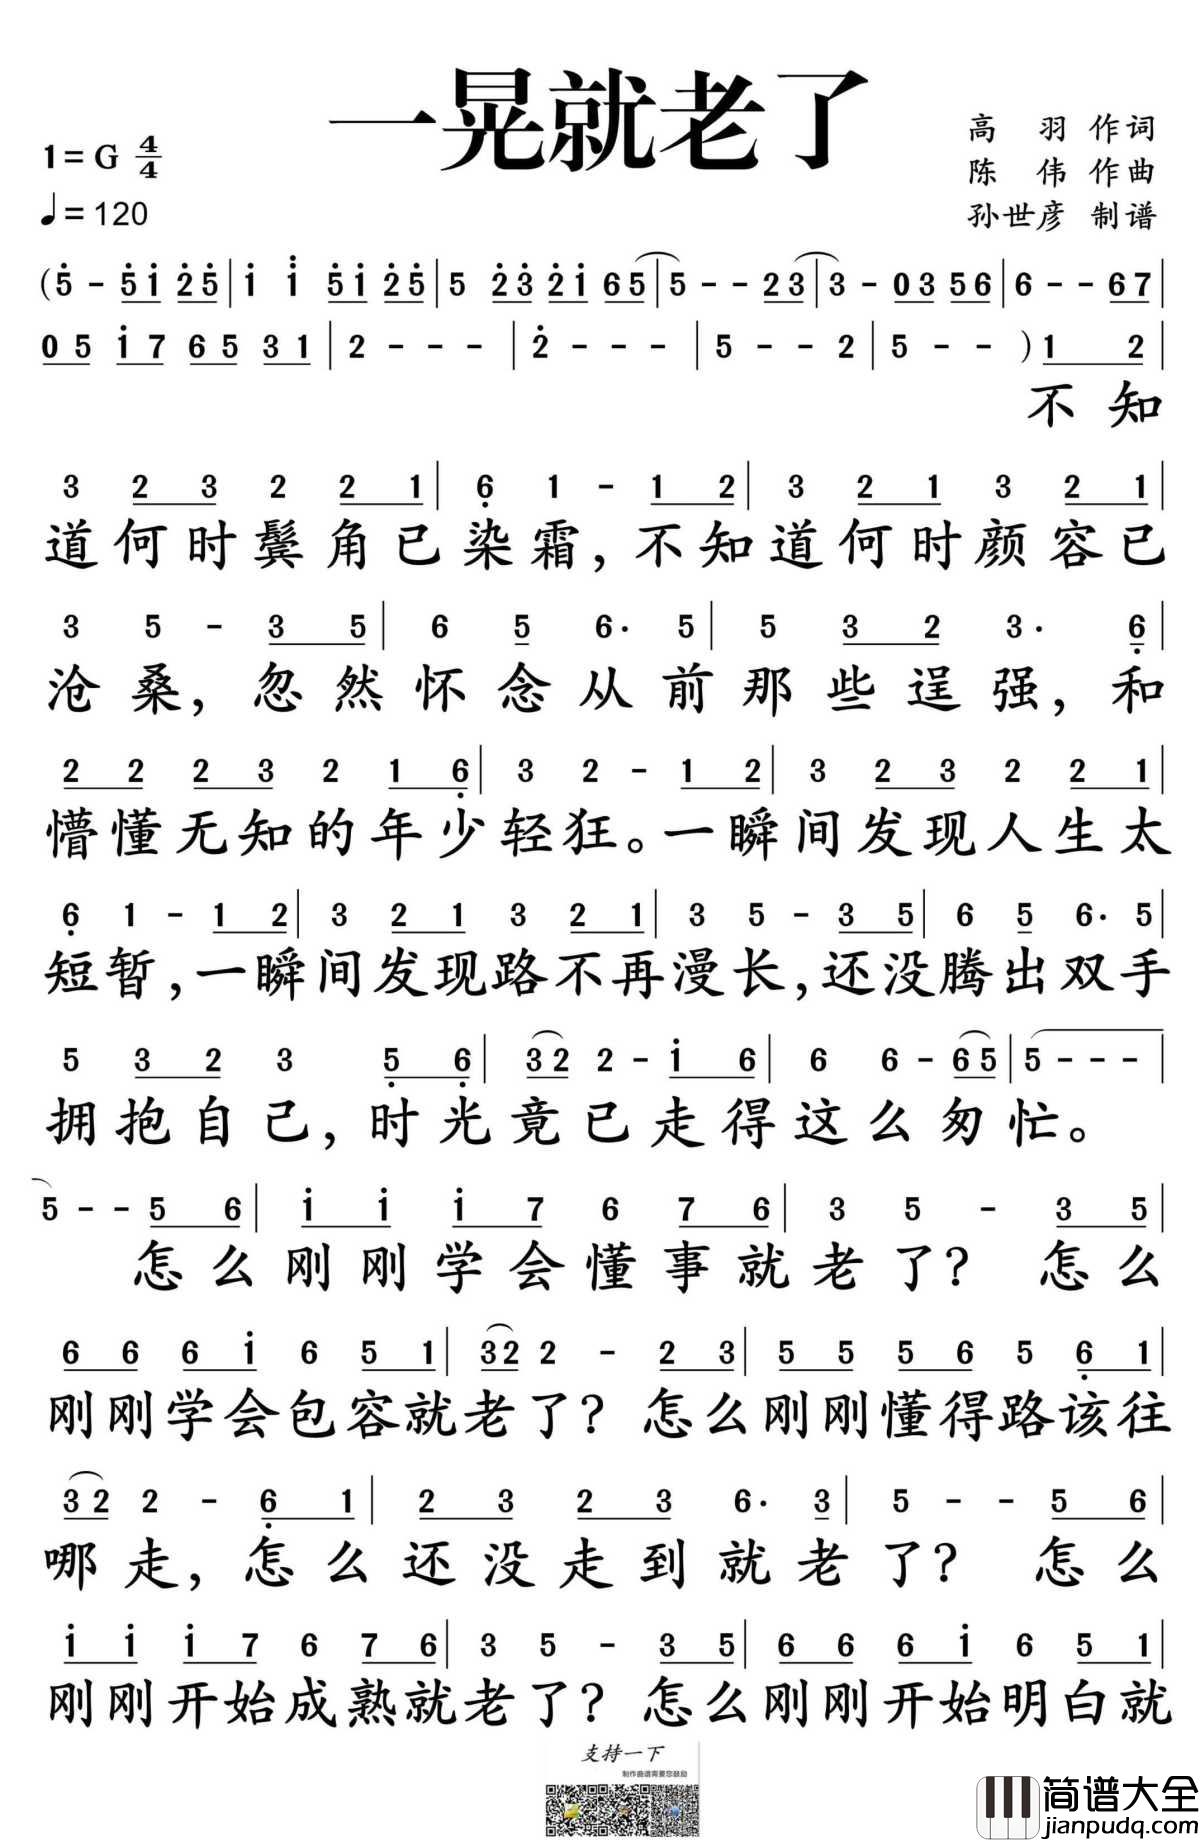 一晃就老了
1=G 4/4
♩=120
高 羽 作词
陈 伟 作曲
孙世彦 制谱
(5 - 5 1 2 5 | 1 1 5 1 2 5 | 5 2 3 2 1 6 5 | 5 - - 2 3 | 3 - 0 3 5 6 | 6 - - 6 7 |
0 5 1 7 6 5 3 1 | 2 - - - | 2 - - - | 5 - - 2 | 5 - - ) 1 2 |
不知
3 2 3 2 2 1 | 6 1 - 1 2 | 3 2 1 3 2 1 |
道何时鬓角已染霜,不知道何时颜容已
3 5 - 3 5 | 6 5 6· 5 | 5 3 2 3· 6 |
沧桑,忽然怀念从前那些逞强,和
2 2 2 3 2 1 6 | 3 2 - 1 2 | 3 2 3 2 2 1 |
懵懂无知的年少轻狂。一瞬间发现人生太
6 1 - 1 2 | 3 2 1 3 2 1 | 3 5 - 3 5 | 6 5 6· 5 |
短暂,一瞬间发现路不再漫长,还没腾出双手
5 3 2 3 5 6 | 3 2 2 - 1 6 | 6 6 - 6 5 | 5 - - - |
拥抱自己,时光竟已走得这么匆忙。
5 - - 5 6 | 1 1 1 7 6 7 6 | 3 5 - 3 5 |
怎么刚刚学会懂事就老了? 怎么
6 6 6 1 6 5 1 | 3 2 2 - 2 3 | 5 5 5 6 5 6 1 |
刚刚学会包容就老了? 怎么刚刚懂得路该往
3 2 2 - 6 1 | 2 3 2 3 6· 3 | 5 - - 5 6 |
哪走,怎么还没走到就老了? 怎么
1 1 1 7 6 7 6 | 3 5 - 3 5 | 6 6 6 1 6 5 1 |
刚刚开始成熟就老了? 怎么刚刚开始明白就
支持一下
制作曲谱需要您鼓励
简谱大全
jianpudq.com